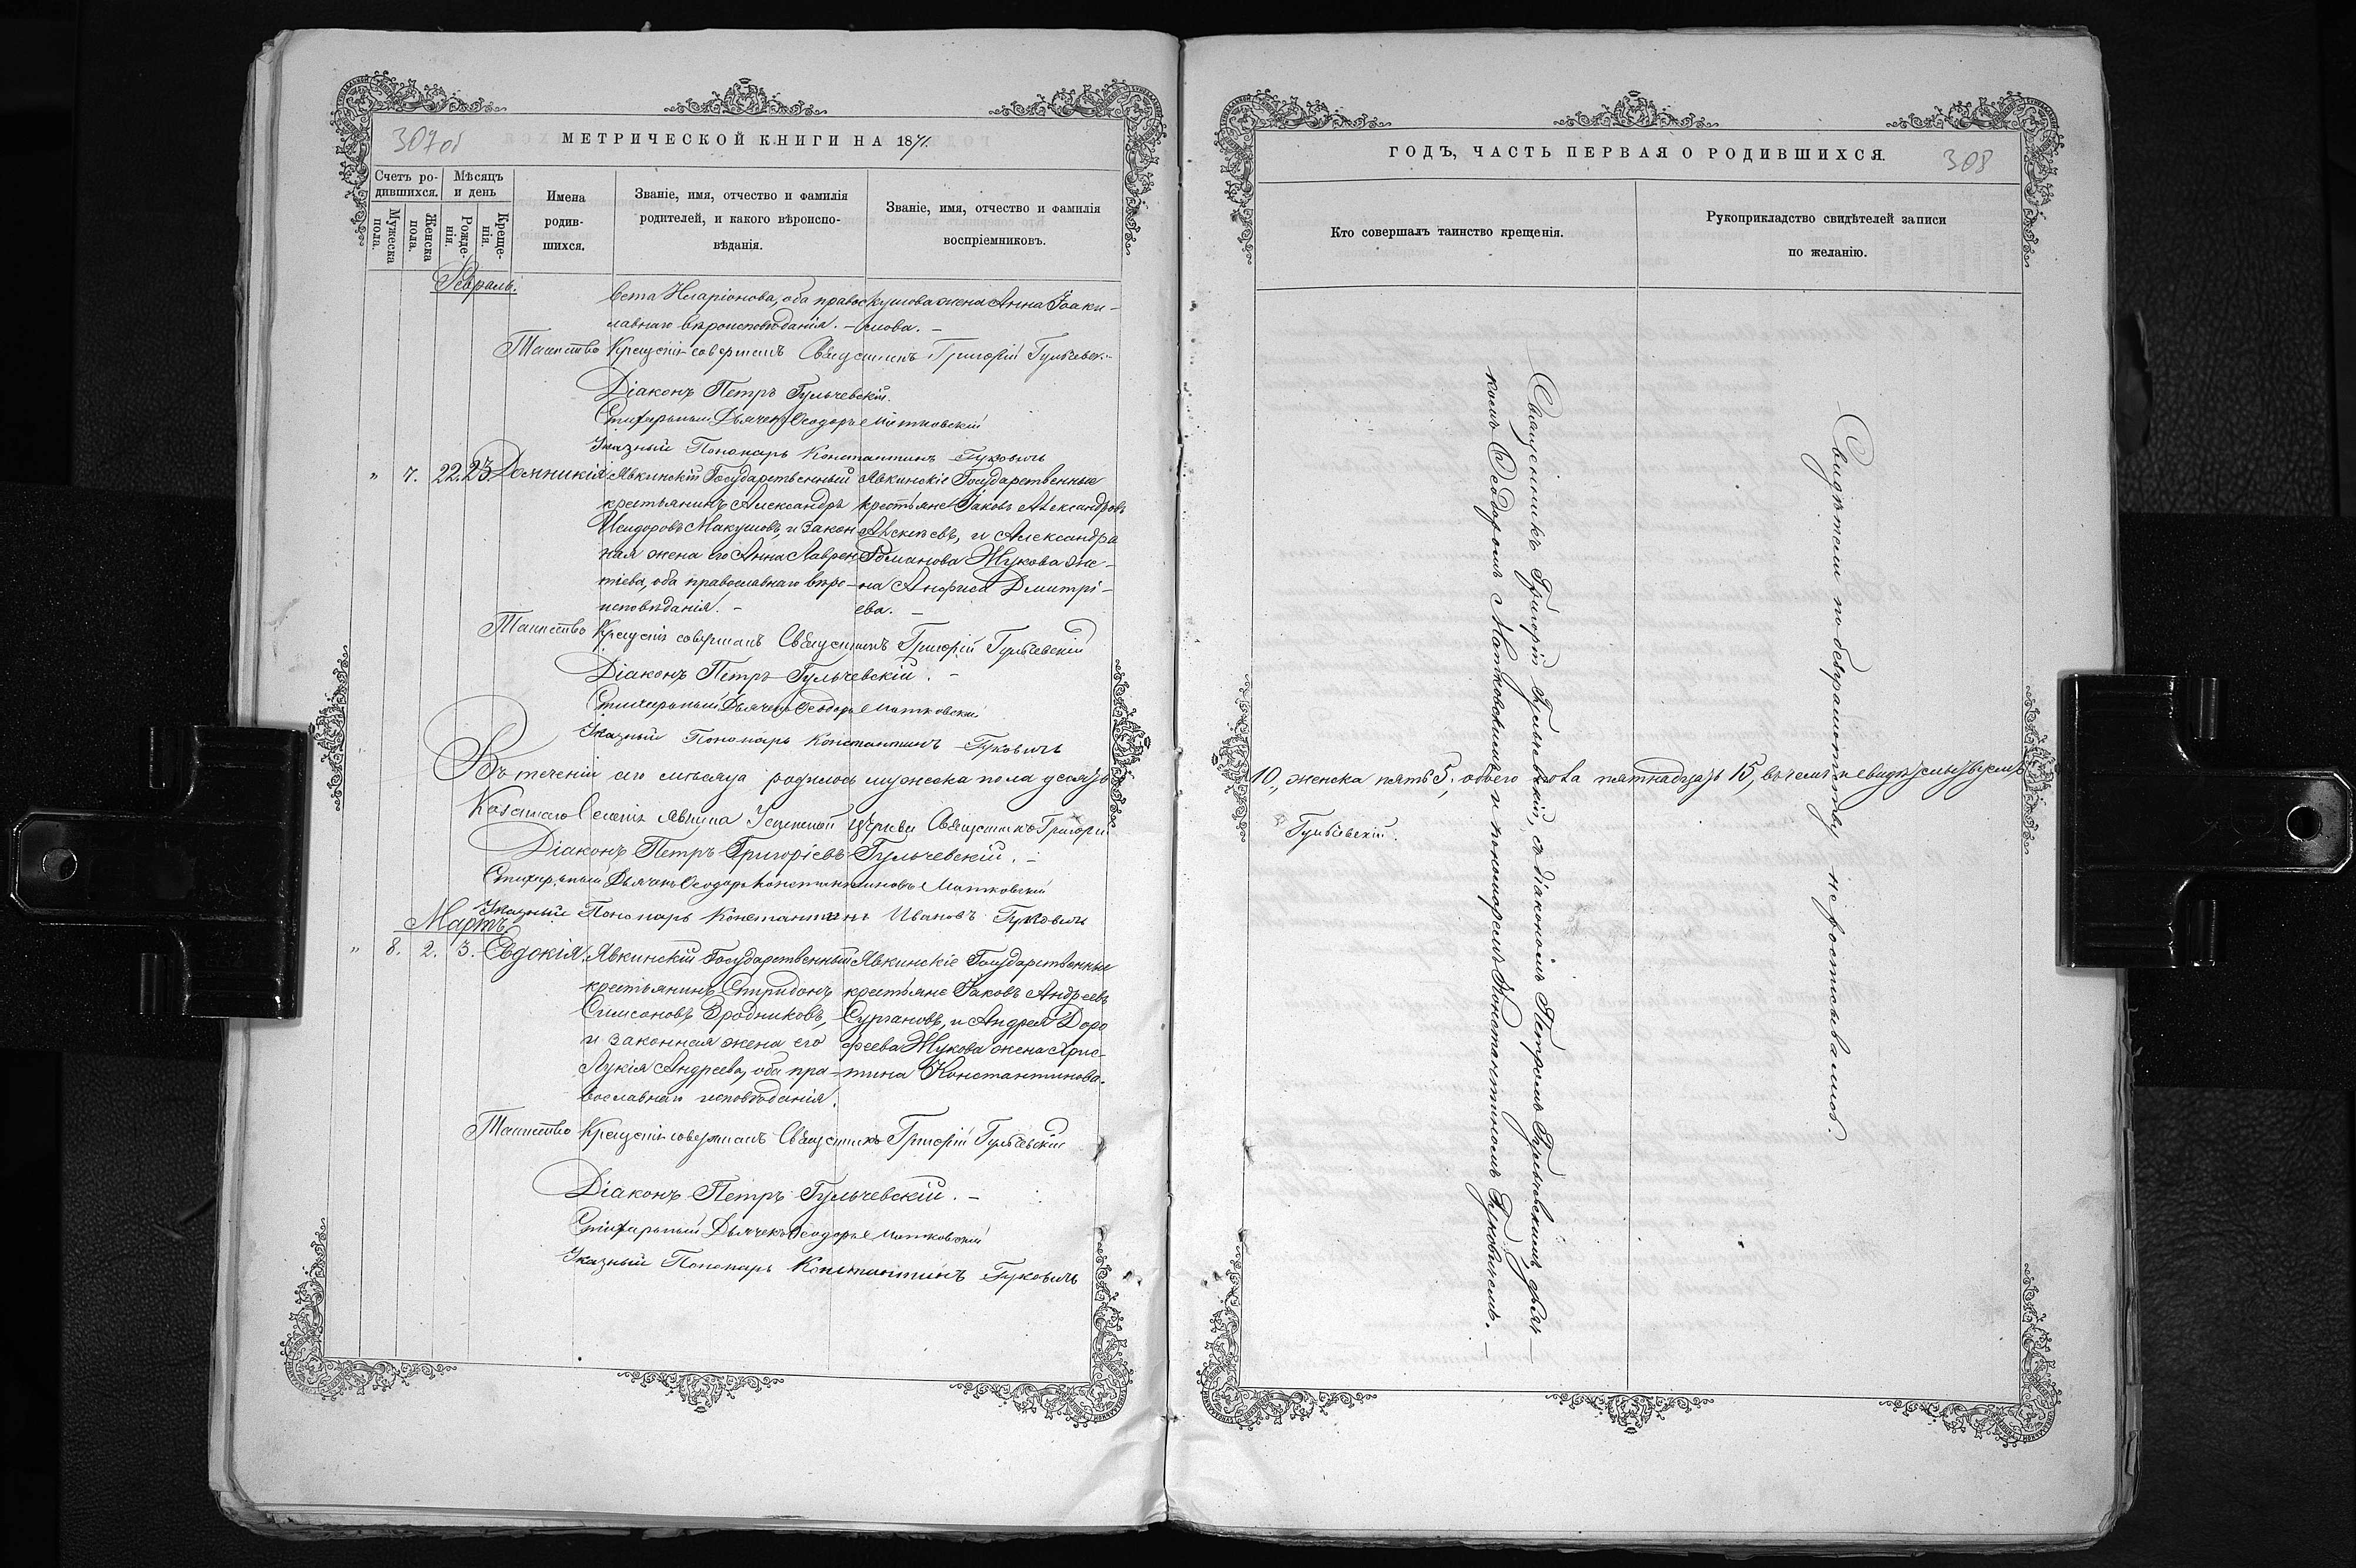 307об
МЕТРИЧЕСКОЙ КНИГИ НА 1871.
Счетъ родившихся.
Мужеска пола.
Женска пола.
Мѣсяцъ и день
Рожденія.
Крещенія.
Имена родившихся.
Званіе, имя, отчество и фамилія родителей, и какого вѣроисповѣданія.
Званіе, имя, отчество и фамилія воспріемниковъ.
Февраль.
вета Иларіонова, оба право- кушова жена Анна Іоаки-
славнаго вѣроисповѣданія. – мова. –
Таинство Крещенія совершалъ Священникъ Григорій Гульчевск.
Діаконъ Петръ Гульчевскій.
Стихарный Дьячекъ Ѳеодоръ Матковскій
Указный Пономарь Константинъ Гукович
" 7. 22. 23. Домникія
Явкинскій Государственный
крестьянинъ Александръ
Исидоровъ Макушовъ, и закон-
ная жена его Анна Лаврен-
тіева, оба православнаго вѣро-
исповѣданія. –
Явкинскіе Государственные
крестьяне Іаковъ Александровъ
Алексѣевъ, и Александра
Романова Жукова же-
на Анфиса Дмитрі-
ева. –
Таинство Крещенія совершалъ Священникъ Григорій Гульчевскій
Діаконъ Петръ Гульчевскій. –
Стихарный Дьячекъ Ѳеодоръ Матковскій
Указный Пономарь Константинъ Гуковичъ
Въ теченіи сего мѣсяца родилось мужеска пола десять
10, женска пять 5, обоего пола пятнадцать 15, въ чемъ и
Казеннаго Селенія Явкина Успенской Церкви Священникъ Григорій
Гульчевскій.
Діаконъ Петръ Григоріевъ Гульчевскій. –
Стихарный Дьячекъ Ѳеодоръ Константиновъ Матковскій
Указный Пономарь Константинъ Ивановъ Гуковичъ
Мартъ
" 8. 2. 3. Евдокія
Явкинскій Государственный
крестьянинъ Спиридонъ
Симеоновъ Бродниковъ,
и законная жена его
Лукія Андреева, оба пра-
вославнаго исповѣданія.
Явкинскіе Государственные
крестьяне Іаковъ Андреевъ
Сургановъ, и Андрея Доро-
феева Жукова жена Хрис-
тина Константинова.
Таинство Крещенія совершалъ Священникъ Григорій Гульчевскій
Діаконъ Петръ Гульчевскій. –
Стихарный Дьячекъ Ѳеодоръ Матковскій
Указный Пономарь Константинъ Гуковичъ
ГОДЪ, ЧАСТЬ ПЕРВАЯ О РОДИВШИХСЯ.
308
Кто совершалъ таинство крещенія.
Рукоприкладство свидѣтелей записи по желанію.
Священникъ Григорій Гульчевскій, съ діакономъ Петромъ Гульчевскимъ, дьяч-
комъ Ѳеодоромъ Матковскимъ и пономаремъ Константиномъ Гуковичемъ. –
Свидѣтели по безграмотству не росписывались.